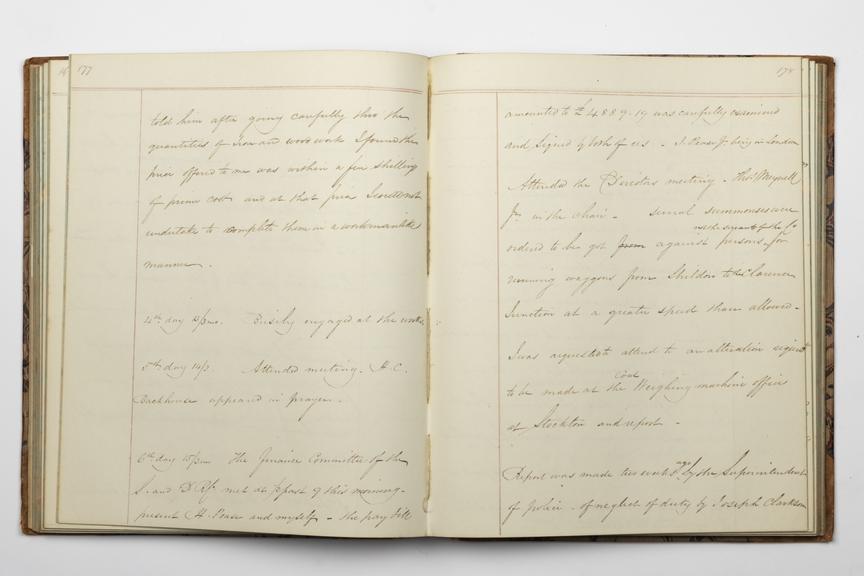 177
told him after going carefully thro' the
quantities of Iron and wood work I found the
price offered to me was within a few shillings
of prime cost and at that price I could not
undertake to complete them in a workmanlike
manner.
4th day 13/3mo. Busily engaged at the works.
5th day 14/3. Attended meeting. H. C.
Backhouse appeared in prayer.
6th day 15/3mo The Finance Committee of the
S. and D. Rly met at ½ past 9 this morning -
present H. Pease and myself - the pay bill
178
amounted to £4889.19 was carefully examined
and signed by both of us - J. Pease Jr being in London
Attended the Directors meeting - Thos Meynell
Jr in the chair - several summonses were
not the servants of the Co
ordered to be got from against persons for
running waggons from Shildon to the Clarence
Junction at a greater speed than allowed -
I was requested to attend to an alteration required
Coal
to be made at the Weighing machine offices
at Stockton and report -
ago
Report was made two weeks by the Superintendent
of police - of neglect of duty by Joseph Clarkson